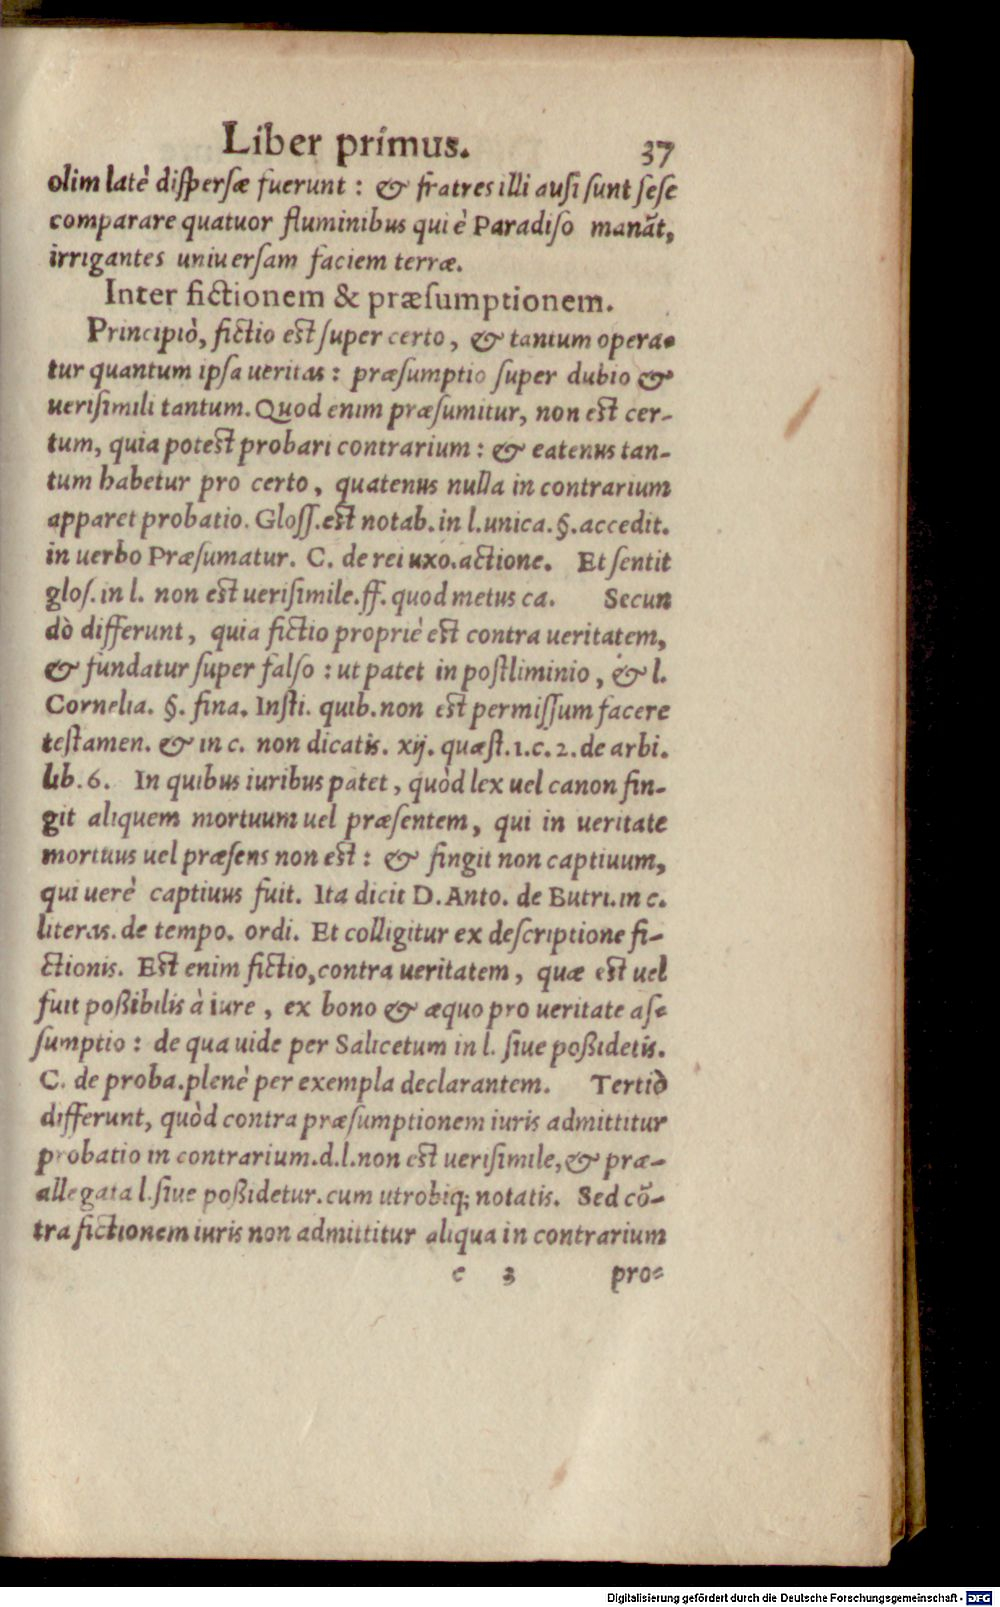 Liber primus. 37
olim latè diſperſæ fuerunt : & fratres illi auſi ſunt ſeſe
comparare quatuor fluminibus qui è Paradiſo manãt,
irrigantes uniuerſam faciem terræ.
Inter fictionem & præſumptionem.
Principiò, fictio eſt ſuper certo, & tantum opera-
tur quantum ipſa ueritas : præſumptio ſuper dubio &
ueriſimili tantum. Quod enim præſumitur, non eſt cer-
tum, quia poteſt probari contrarium : & eatenus tan-
tum habetur pro certo, quatenus nulla in contrarium
apparet probatio. Gloſſ. eſt notab. in l. unica. §. accedit.
in uerbo Præſumatur. C. de rei uxo. actione. Et ſentit
gloſ. in l. non eſt ueriſimile. ff. quod metus ca. Secun
dò differunt, quia fictio propriè eſt contra ueritatem,
& fundatur ſuper falſo : ut patet in poſtliminio, & l.
Cornelia. §. fina. Inſti. quib. non eſt permiſſum facere
teſtamen. & in c. non dicatis. xij. quæſt. 1. c. 2. de arbi.
lib. 6. In quibus iuribus patet, quòd lex uel canon fin-
git aliquem mortuum uel præſentem, qui in ueritate
mortuus uel præſens non eſt : & fingit non captiuum,
qui uerè captiuus fuit. Ita dicit D. Anto. de Butri. in c.
literas. de tempo. ordi. Et colligitur ex deſcriptione fi-
ctionis. Eſt enim fictio, contra ueritatem, quæ eſt uel
fuit poßibilis à iure, ex bono & æquo pro ueritate aſ-
ſumptio : de qua uide per Salicetum in l. ſiue poßidetis.
C. de proba. plenè per exempla declarantem. Tertiò
differunt, quòd contra præſumptionem iuris admittitur
probatio in contrarium. d. l. non eſt ueriſimile, & præ-
allegata l. ſiue poßidetur. cum utrobiq; notatis. Sed cõ-
tra fictionem iuris non admittitur aliqua in contrarium
c 3 pro-
Digitalisierung gefördert durch die Deutsche Forschungsgemeinschaft - DFG